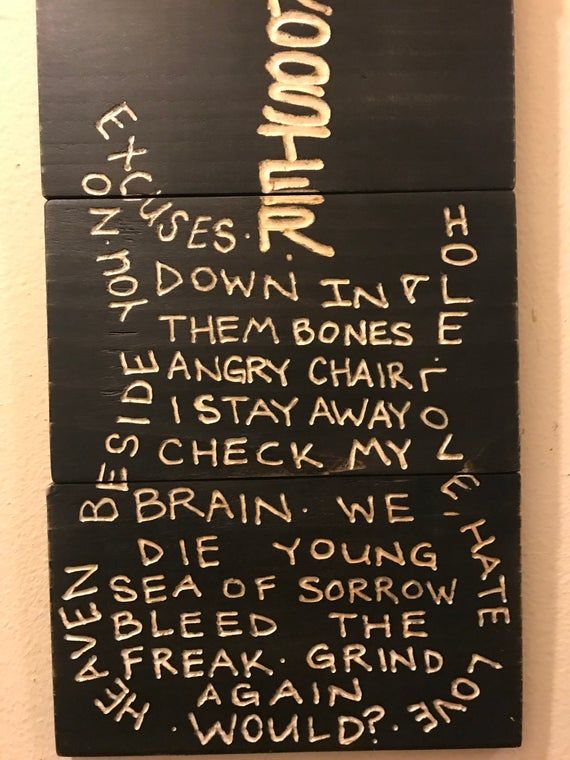 ROOSTER.
HEAVEN BESIDE YOU. NO EXCUSES.
DOWN IN A HOLE. LOVE, HATE LOVE.
THEM BONES
ANGRY CHAIR
I STAY AWAY
CHECK MY
BRAIN. WE
DIE YOUNG
SEA OF SORROW
BLEED THE
FREAK. GRIND
AGAIN
.WOULD?.